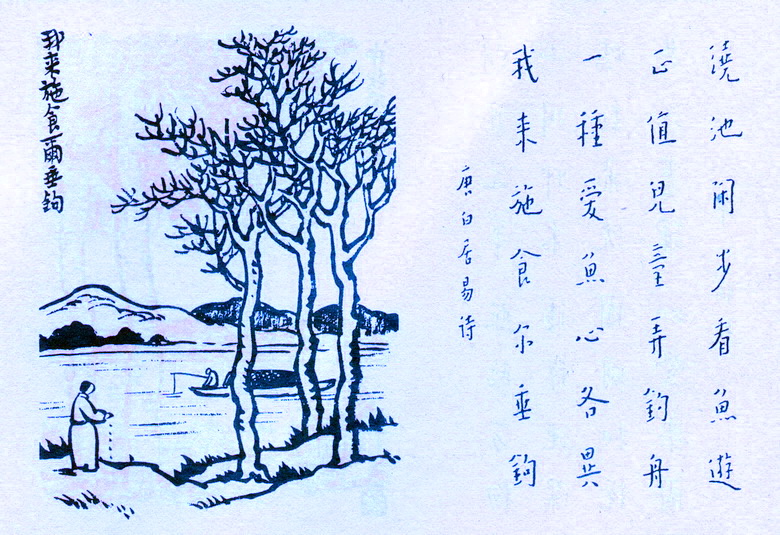 澆池闲步看魚遊
正值兒童弄釣舟
一種愛魚心各異
我来施食尔垂鉤
唐白居易诗
我来施食爾垂鉤